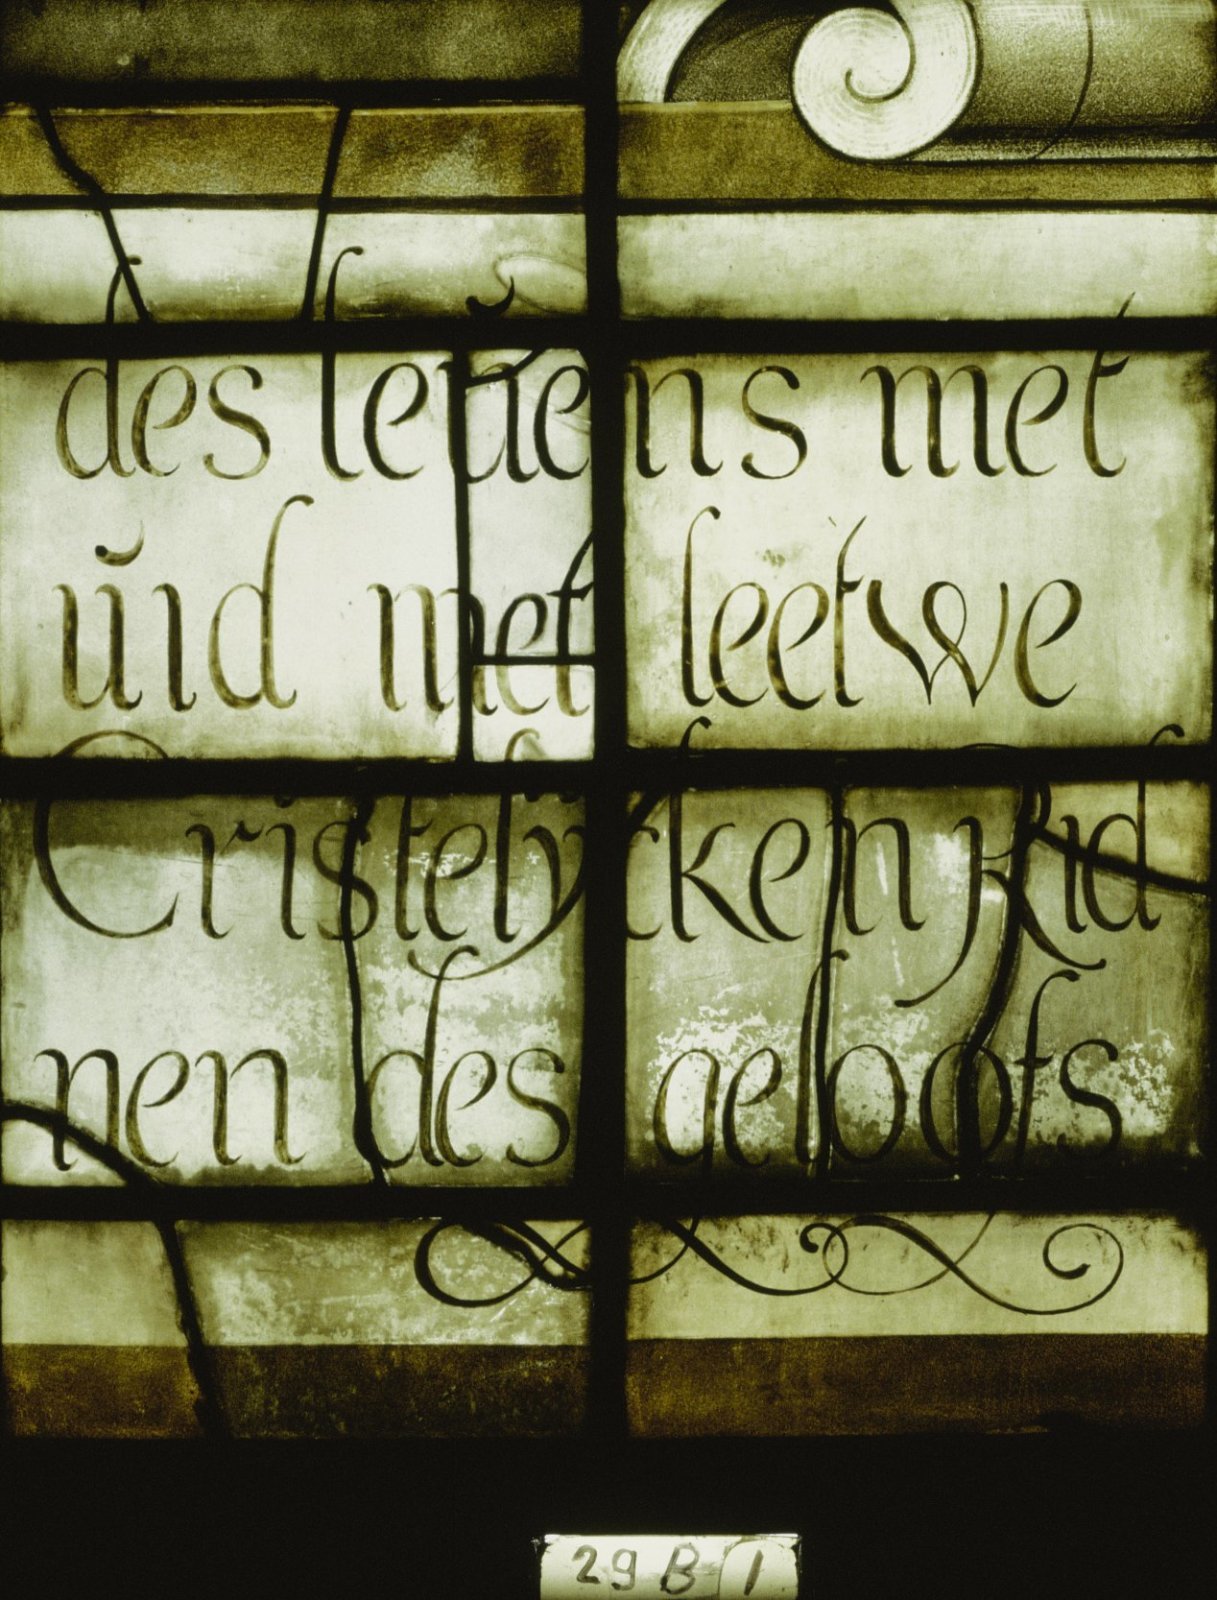 des leŭens met
ŭid met leetwe
Cristelycken Rid
nen des geloofs
29 B 1